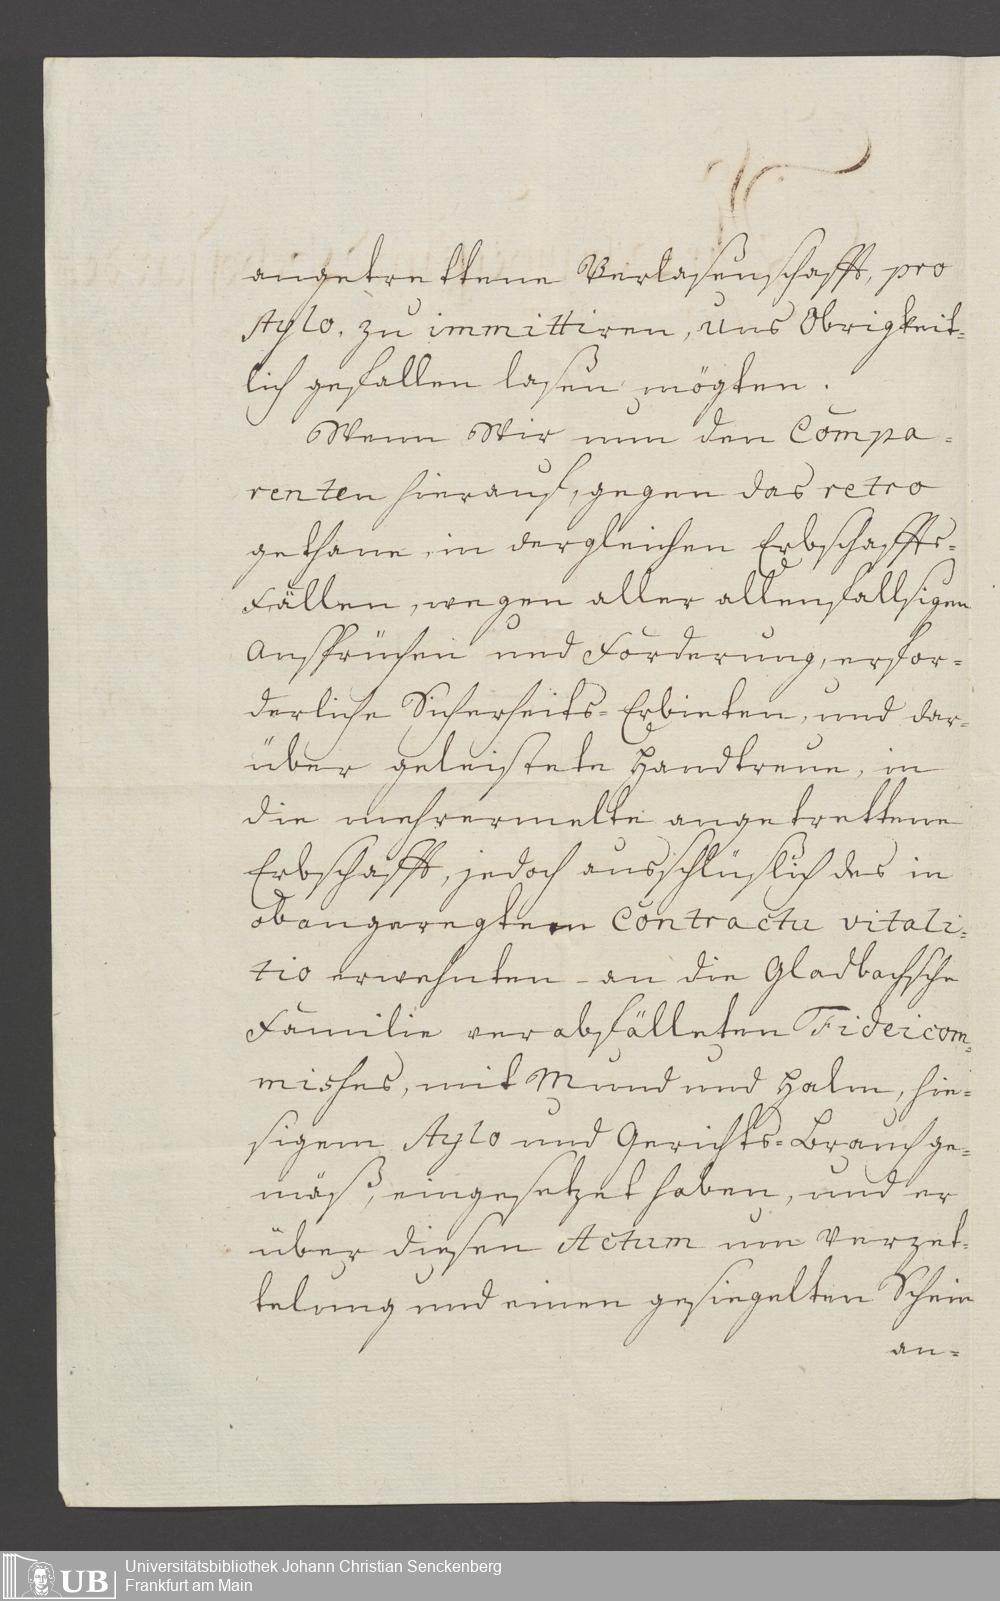 angetrettene Verlasenschafft, pro
Stylo, zu immittiren, Uns Obrigkeit=
lich gefallen lasen mögten.
Wenn Wir nun den Compa=
renten hierauf, gegen das retro
gethane, in dergleichen Erbschaffts=
Fällen, wegen aller allenfallsigen
Ansprüchen und Forderung, erfor=
derliche Sicherheits=Erbieten, und dar=
über geleistete Handtreue, in
die mehrermelte angetrettene
Erbschafft, jedoch ausschlüslich des in
obangeregtem Contractu vitali=
tio erwehnten - an die Gladbachsche
Familie verabfälleten Fideicom=
misses, mit Mund und Halm, hie=
sigem Stylo und Gerichts=Brauch ge=
mäß, eingesetzet haben, und er
über diesen Actum um Verzet=
telung und einen gesiegelten Schein
an=
UB
Universitätsbibliothek Johann Christian Senckenberg
Frankfurt am Main